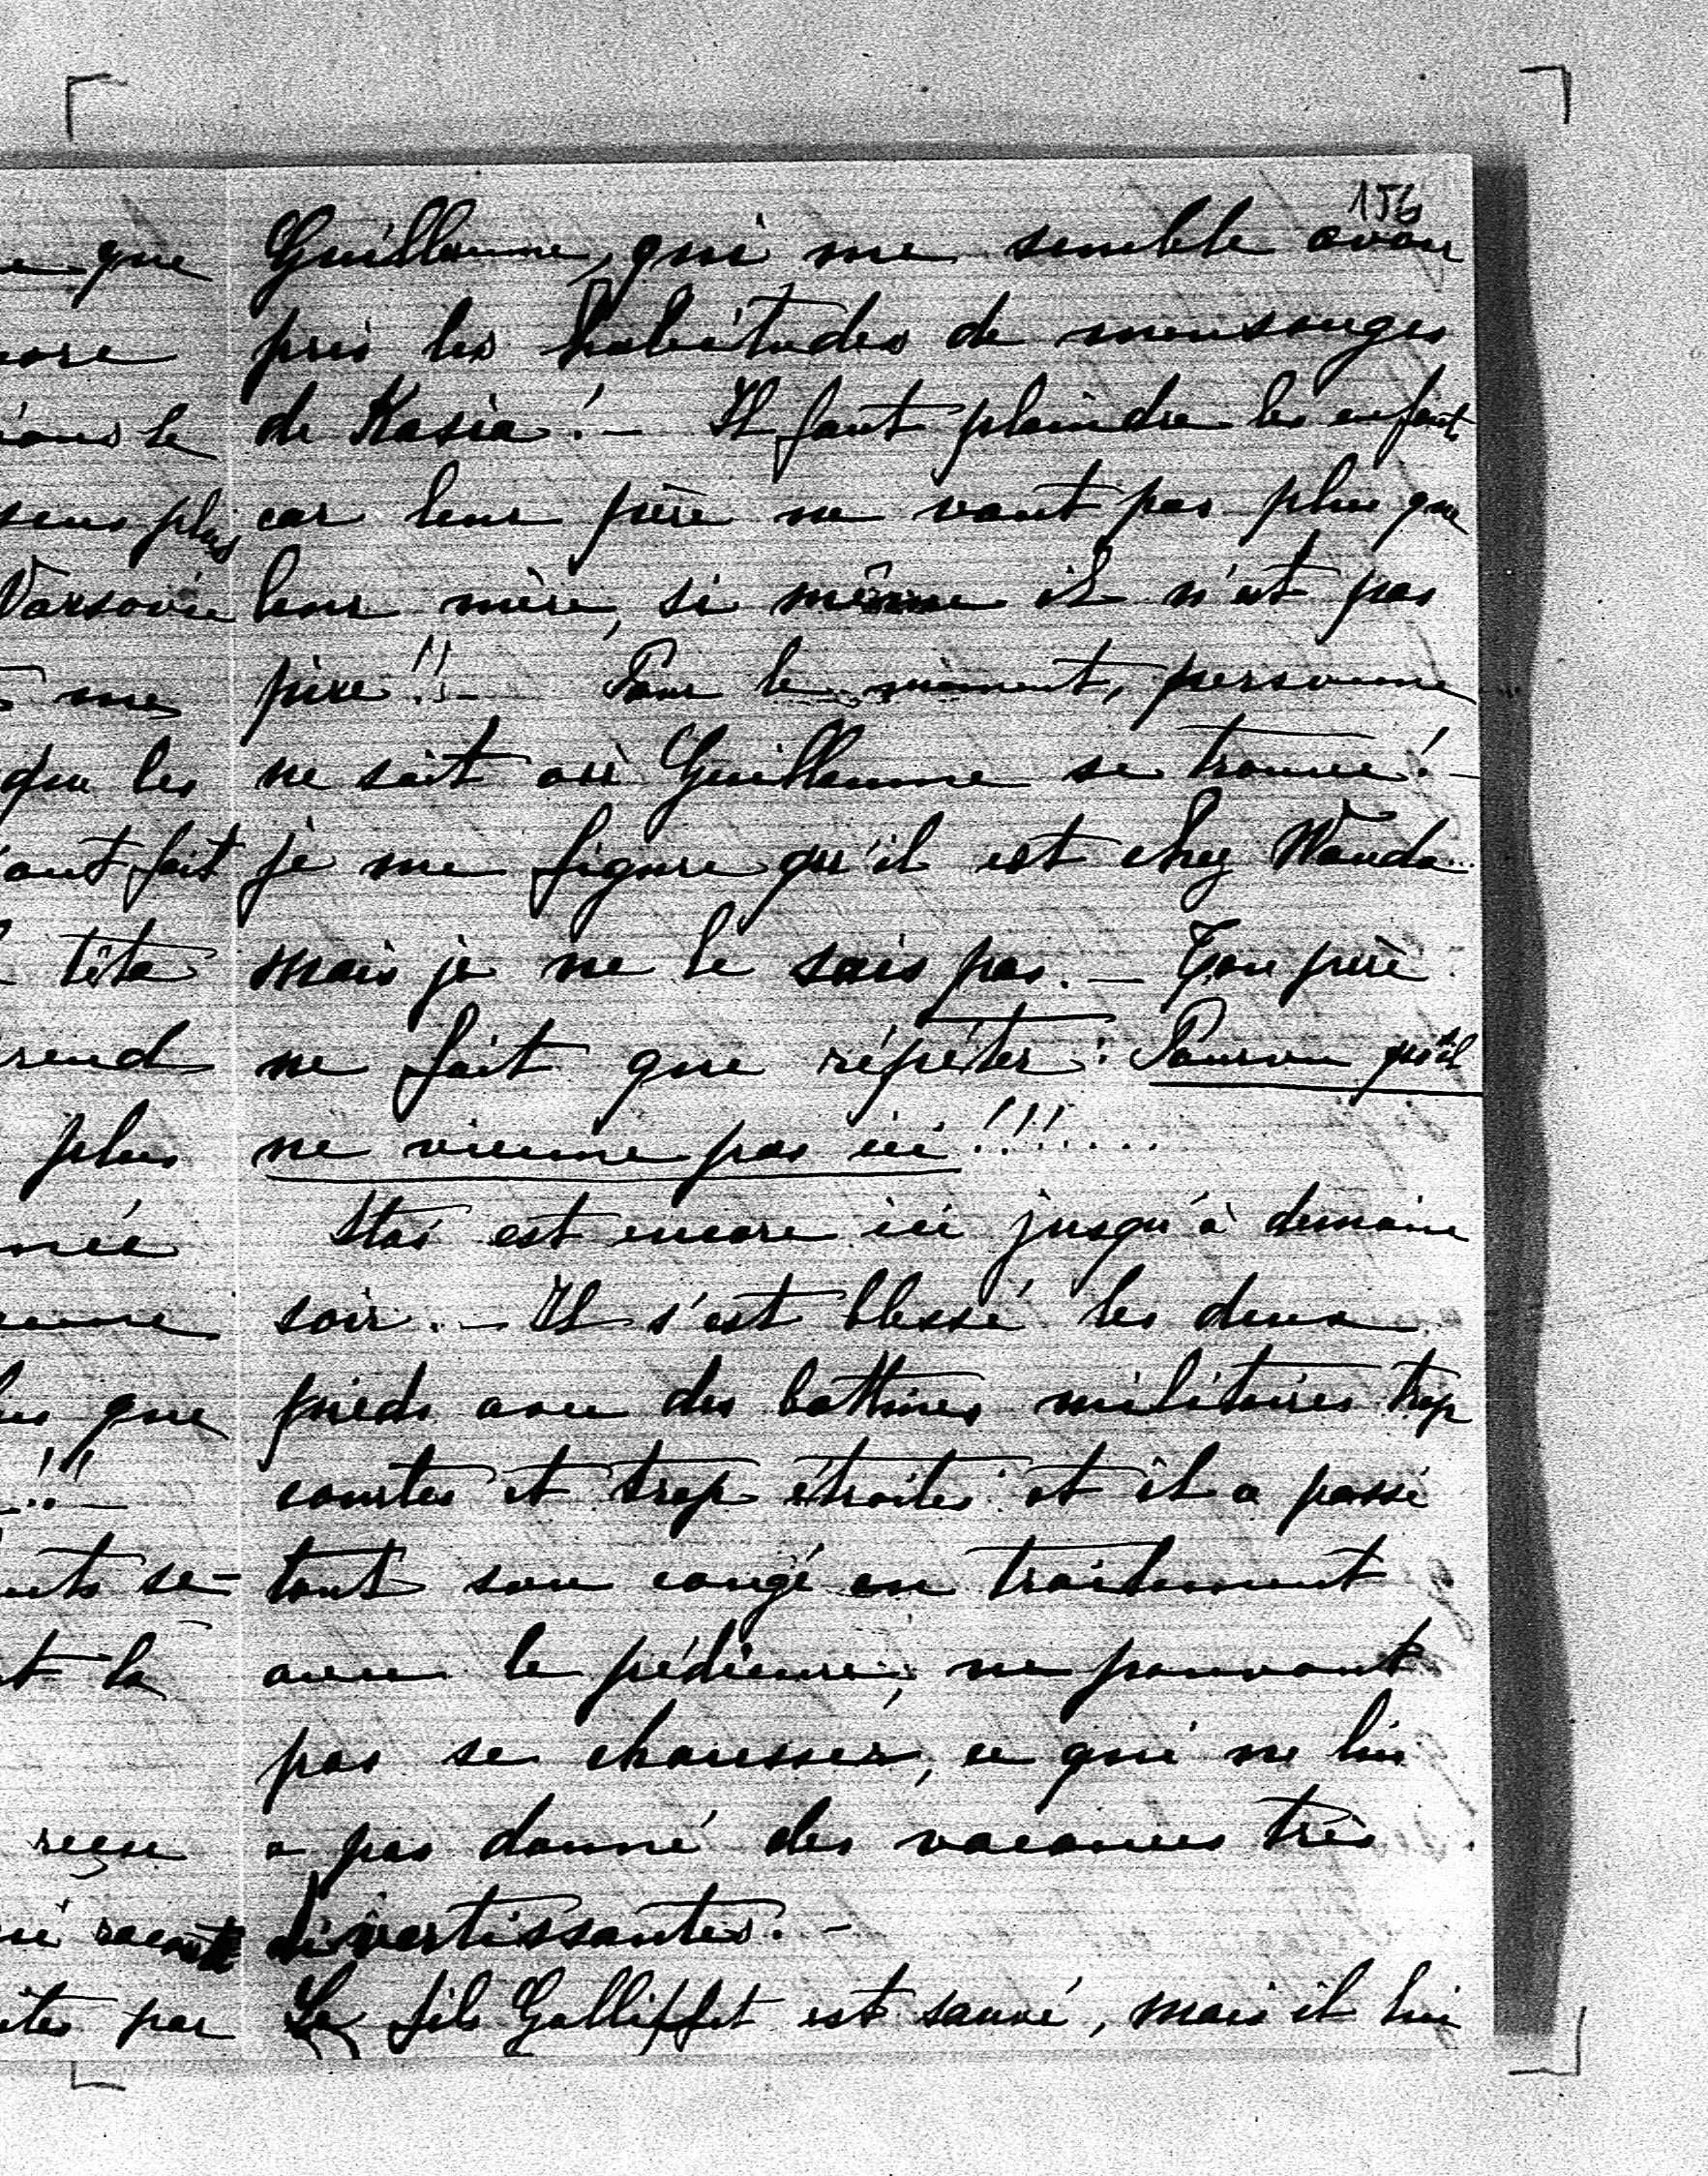 156
Guillaume, qui me semble avoir
pris les habitudes de mensonges
de Kasia! – Il faut plaindre les enfants
car leur père ne vaut pas plus que
leur mère, si même il n'est pas
pire!! – Pour le moment, personne
ne sait où Guillaume se trouve! –
je me figure qu'il est chez Wanda...
mais je ne le sais pas. – Ton père
ne fait que répéter: Pourvu qu'il
ne vienne pas ici!!!....
Staś est encore ici jusqu'à demain
soir. – Il s'est blessé les deux
pieds avec des bottines militaires trop
courtes et trop étroites et il a passé
tout son congé en traitement
avec le pédicure, ne pouvant
pas se chausser, ce qui ne lui
a pas donné des vacances très
divertissantes. –
Le fils Galliffet est sauvé, mais il lui
que
le
plus
Varsovie
me
que les
ont fait
tête
plus
que
!! –
se-
la
reçu
par